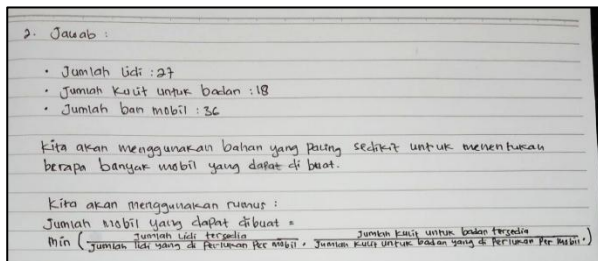 2. Jawab :
• Jumlah lidi : 27
• Jumlah kulit untuk badan : 18
• Jumlah ban mobil : 36
Kita akan menggunakan bahan yang paling sedikit untuk menentukan
berapa banyak mobil yang dapat di buat.
Kita akan menggunakan rumus :
Jumlah mobil yang dapat dibuat =
min ( Jumlah lidi tersedia / Jumlah lidi yang di perlukan per mobil , Jumlah kulit untuk badan tersedia / Jumlah kulit untuk badan yang di perlukan per mobil .)